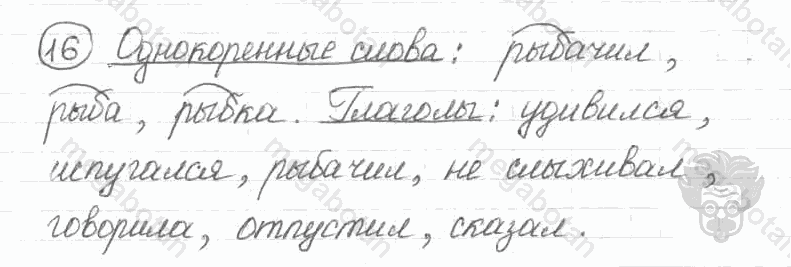 16 Однокоренные слова: рыбачил,
рыба, рыбка. Глаголы: удивился,
испугался, рыбачил, не слыхивал,
говорила, отпустил, сказал.